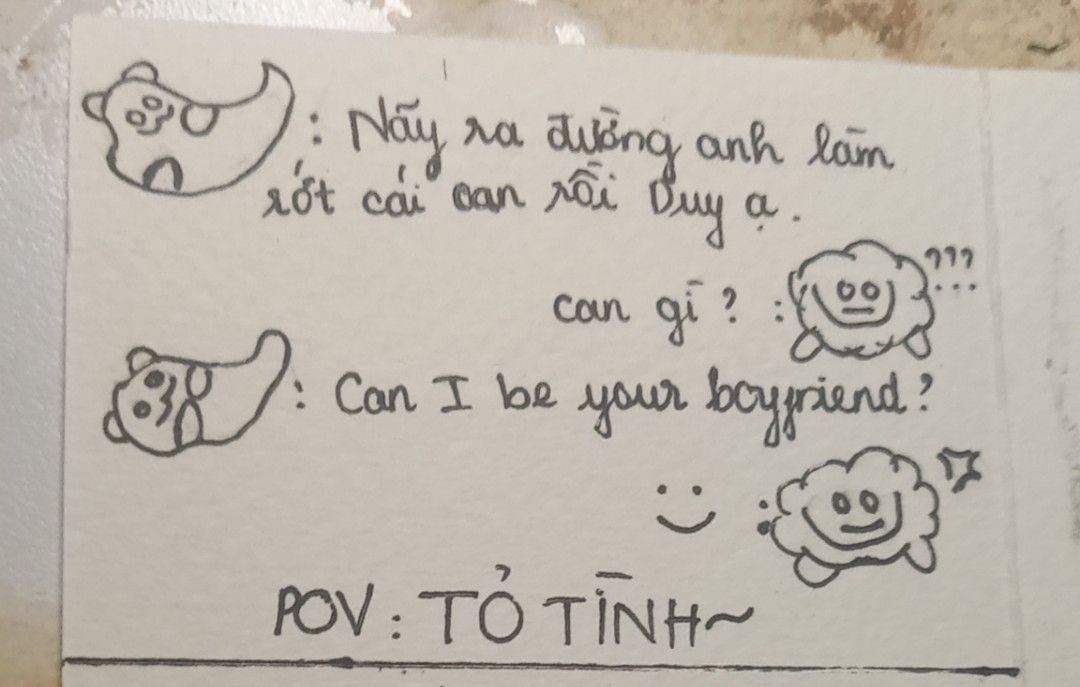 : Nãy ra đường anh làm
rớt cái can rồi Duy ạ.
can gì? :
???
: Can I be your boyfriend?
:
POV: TỎ TÌNH~